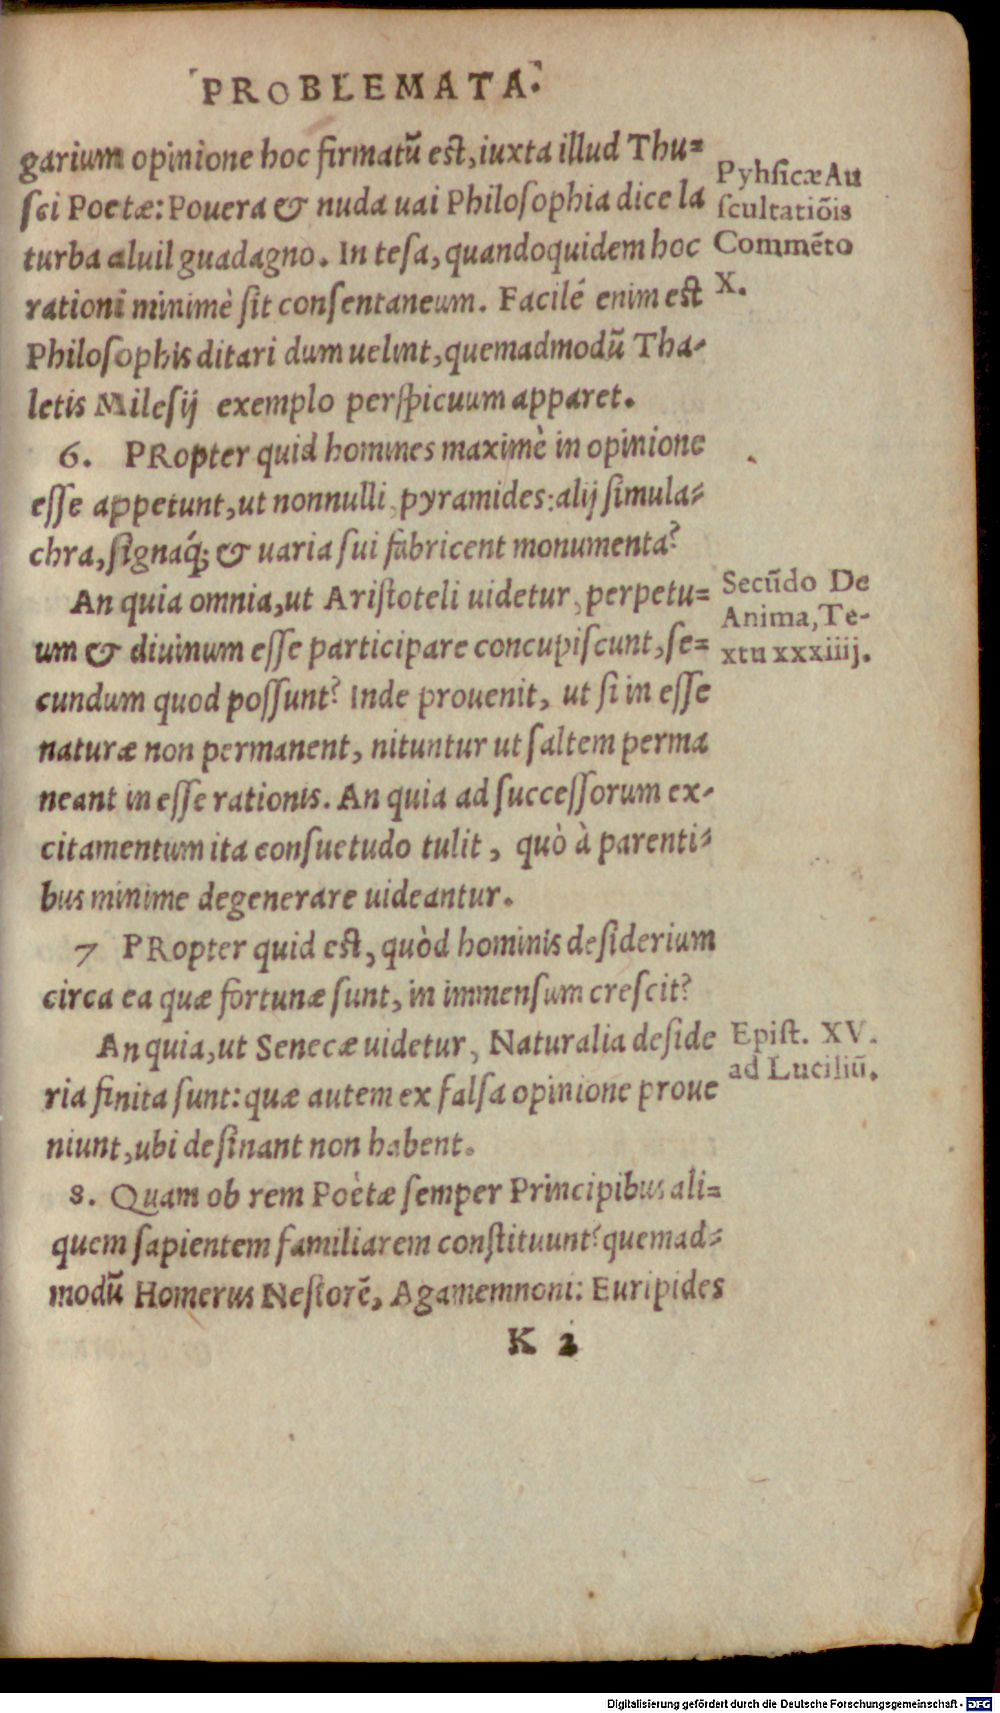 PROBLEMATA.
garium opinione hoc firmatũ est, iuxta illud Thu=
sci Poetæ: Pouera & nuda uai Philosophia dice la
turba aluil guadagno. In tesa, quandoquidem hoc
rationi minimè sit consentaneum. Facilé enim est
Philosophis ditari dum uelint, quemadmodũ Tha-
letis Milesij exemplo perspicuum apparet.
Pyhsicæ Au
scultatiõis
Commẽto
X.
6. PRopter quid homines maximè in opinione
esse appetunt, ut nonnulli pyramides: alij simula=
chra, signaq́; & uaria sui fabricent monumenta?
An quia omnia, ut Aristoteli uidetur, perpetu=
um & diuinum esse participare concupiscunt, se=
cundum quod possunt? Inde prouenit, ut si in esse
naturæ non permanent, nituntur ut saltem perma
neant in esse rationis. An quia ad successorum ex-
citamentum ita consuetudo tulit, quò à parenti=
bus minime degenerare uideantur.
Secũdo De
Anima, Te-
xtu xxxiiij.
7 PRopter quid est, quòd hominis desiderium
circa ea quæ fortunæ sunt, in immensum crescit?
An quia, ut Senecæ uidetur, Naturalia deside
ria finita sunt: quæ autem ex falsa opinione proue
niunt, ubi desinant non habent.
Epist. XV.
ad Luciliũ.
8. Quam ob rem Poètæ semper Principibus ali=
quem sapientem familiarem constituunt? quemad=
modũ Homerus Nestorẽ, Agamemnoni: Euripides
K 2
Digitalisierung gefördert durch die Deutsche Forschungsgemeinschaft - DFG